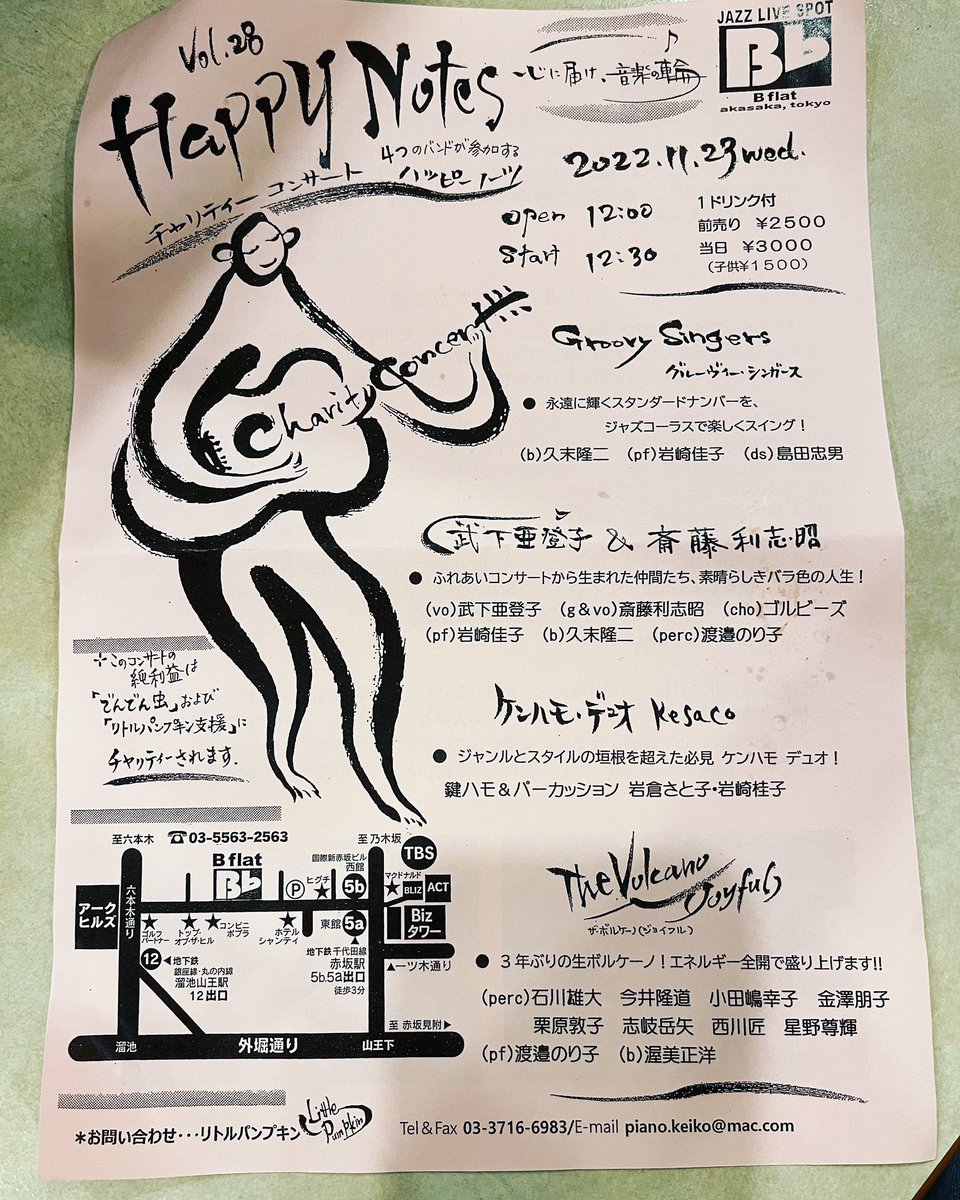 Vol.28
Happy Notes
心に届け、音楽の輪
JAZZ LIVE SPOT
B♭
B flat
akasaka, tokyo
チャリティーコンサート
4つのバンドが参加する
ハッピーノーツ
2022.11.23 wed.
open 12:00
Start 12:30
1ドリンク付
前売り ¥2500
当日 ¥3000
(子供¥1500)
Charity Concert
Groovy Singers
グルーヴィー・シンガーズ
● 永遠に輝くスタンダードナンバーを、
ジャズコーラスで楽しくスイング!
(b)久末隆二 (pf)岩崎佳子 (ds)島田忠男
武下亜登子 & 斎藤利志昭
● ふれあいコンサートから生まれた仲間たち、素晴らしきバラ色の人生!
(vo)武下亜登子 (g&vo)斎藤利志昭 (cho)ゴルビーズ
(pf)岩崎佳子 (b)久末隆二 (perc)渡邉のり子
ケンハモ・デュオ Kesaco
● ジャンルとスタイルの垣根を超えた必見 ケンハモ デュオ!
鍵ハモ&パーカッション 岩倉さと子・岩崎桂子
このコンサートの
純利益は
「でんでん虫」および
「リトルパンプキン支援」に
チャリティーされます.
The Volcano Joyful
ザ・ボルケーノ(ジョイフル)
● 3年ぶりの生ボルケーノ!エネルギー全開で盛り上げます!!
(perc)石川雄大 今井隆道 小田嶋幸子 金澤朋子
栗原敦子 志岐岳矢 西川匠 星野尊輝
(pf)渡邉のり子 (b)渥美正洋
至六本木
☎03-5563-2563
至乃木坂
TBS
B flat
B♭
国際新赤坂ビル
西館
六本木通り
P
ヒグチ
5b
マクドナルド
BLIZ
ACT
アークヒルズ
ゴルフパートナー
トップ・オブ・ザ・ヒル
コンビニポプラ
ホテルシャンティ
東館
5a
Bizタワー
12
◀地下鉄
銀座線・丸の内線
溜池山王駅
12出口
地下鉄 千代田線
赤坂駅
5b.5a出口
徒歩3分
▲一ツ木通り
至 赤坂見附▶
溜池
外堀通り
山王下
*お問い合わせ・・・リトルパンプキン
Little Pumpkin
Tel&Fax 03-3716-6983/E-mail piano.keiko@mac.com